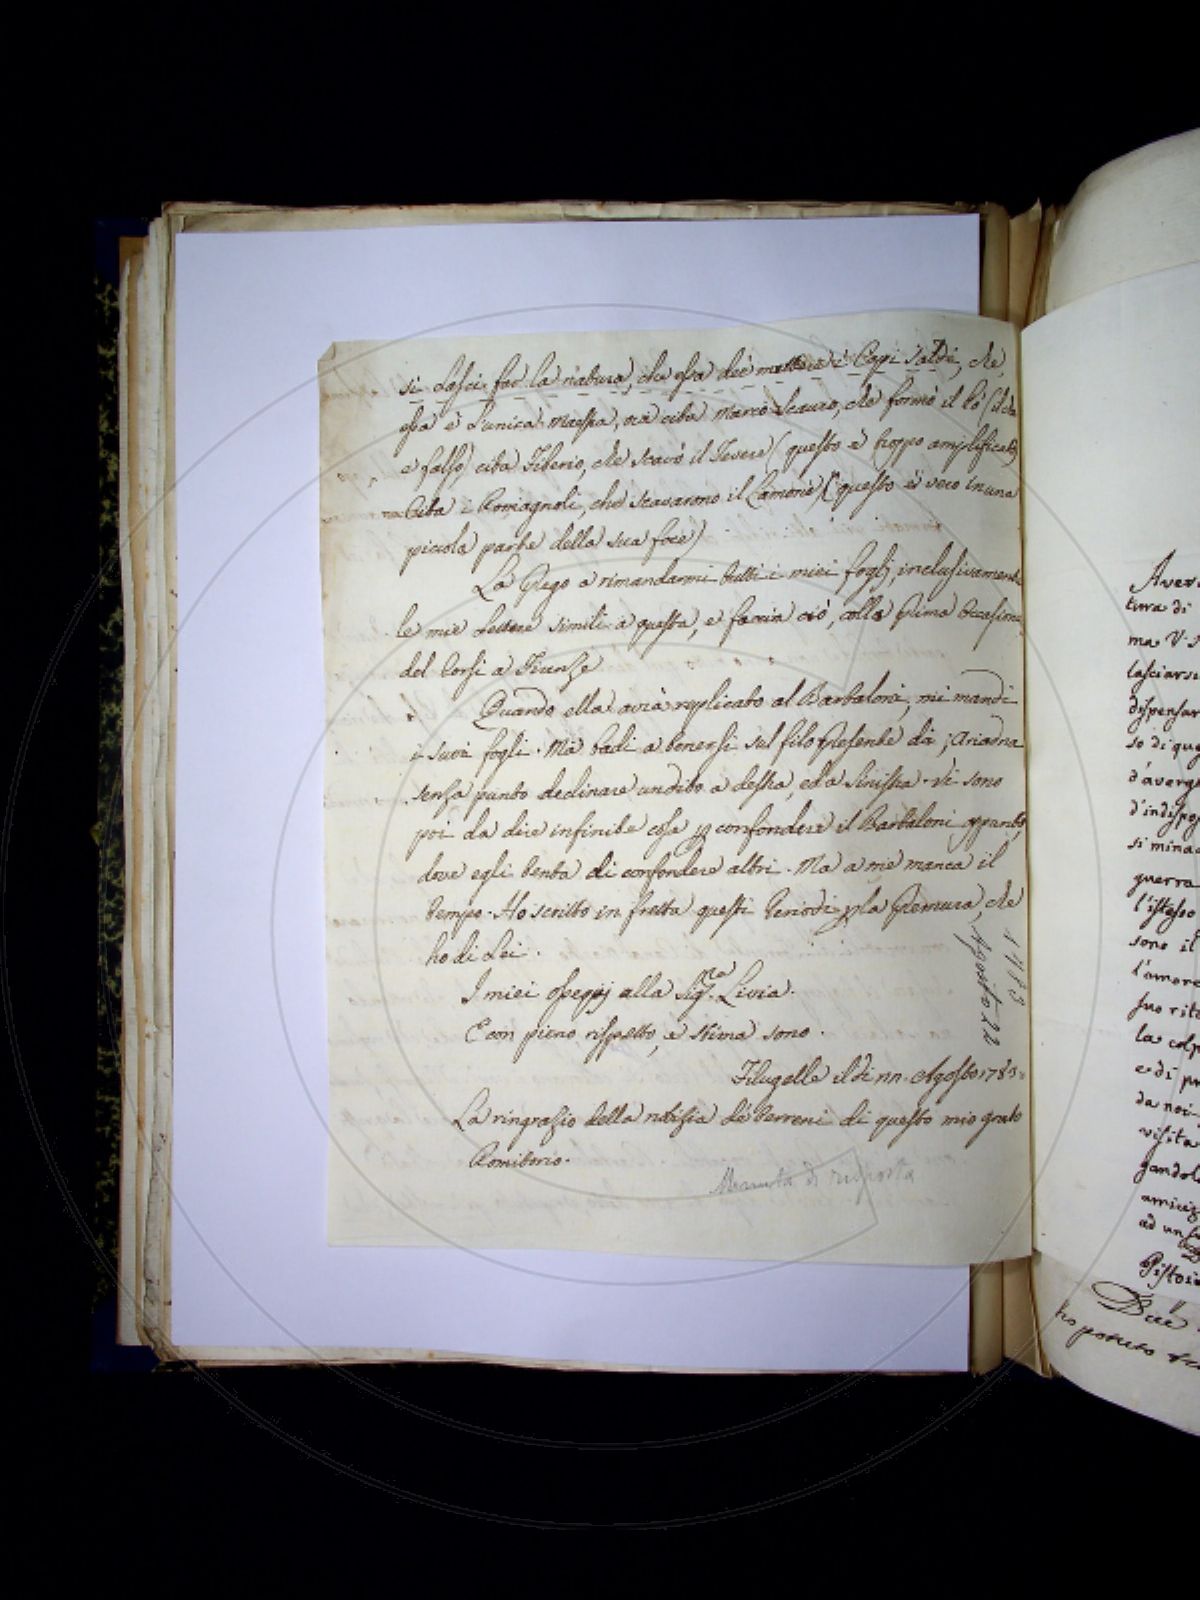 si lasci far la natura, che essa dee mettere i Capi saldi, che
essa è l'unica maestra, ora cita Marco Scauro, che formò il Pò (il che
è falso) cita Tiberio, che scavò il Tevere (questo è troppo amplificato)
Cita i Romagnoli, che scavarono il Lamone (questo è vero in una
piccola parte della sua foce)
La prego a rimandarmi tutti i miei foglj, inclusivamente
le mie Lettere simili a questa, e faccia ciò, colla prima occasione
del Corsi a Firenze
Quando ella avrà replicato al Barbaloni, mi mandi
i suoi fogli. Ma badi a tenersi sul filo presente da Ariadna
senza punto declinare un dito a destra, ed a sinistra. Vi sono
poi da dire infinite cose p confondere il Barbaloni appunto,
dove egli tenta di confondere altri. Ma a me manca il
tempo. Ho scritto in fretta questi periodi p la premura, che
ho di Lei.
I miei ossequj alla Sig.ra Livia.
E con pieno rispetto, e stima sono.
Filugelle il dì 22. Agosto 1783
La ringrazio della notizia de' terreni di questo mio grato
Romitorio.
Minuta di risposta
1783
Agosto 22
Aver
tura di
ma V. S
lasciarsi
dispensar
so di que
d'averg
d'indispo
si minac
guerra
l'istesso
sono il
l'amore
suo rit
la colp
e di pr
da noi
visita
gandol
amiciz
ad un
Pistoia
ho potuto